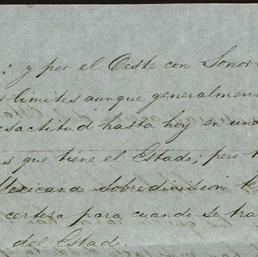 : y por el Oeste con Sonor
s limites aunque generalmen
esactitud hasta hoy en una
s que tiene el Estado, pero
Mexicana sobre division te
certesa para cuando se tra
del Estado.